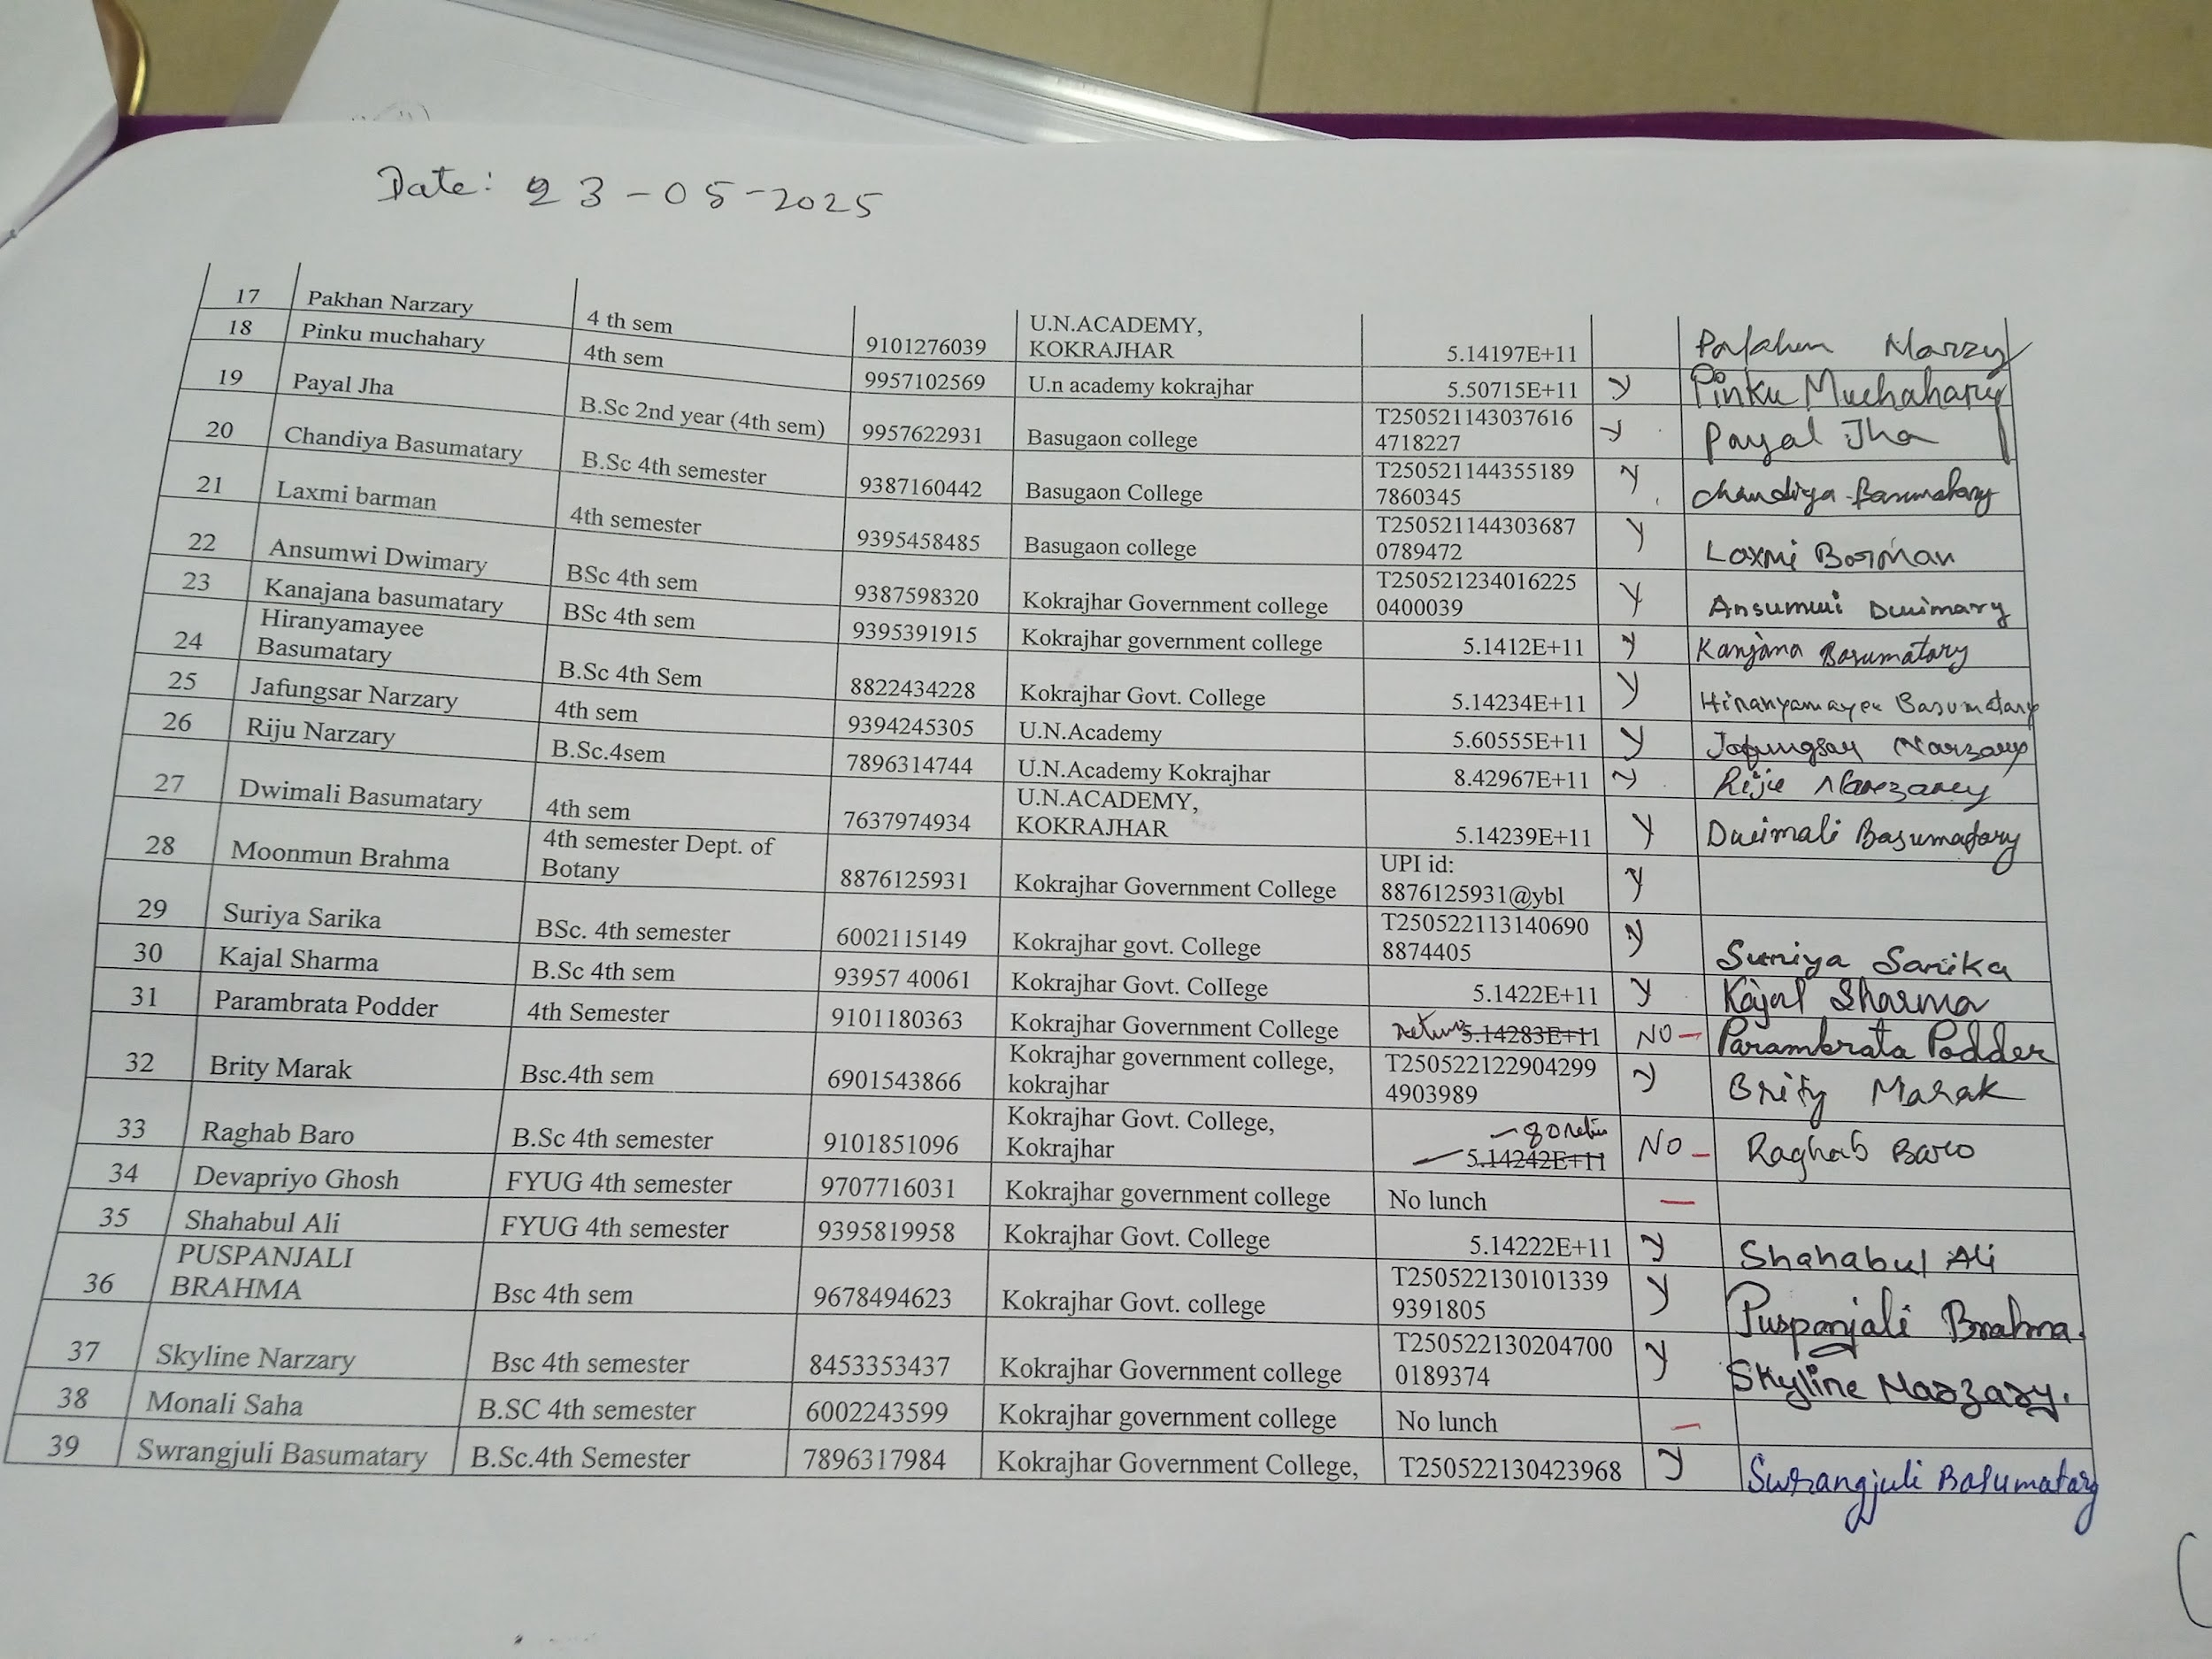 Date: 23-05-2025
17 Pakhan Narzary 4 th sem 9101276039 U.N.ACADEMY, KOKRAJHAR 5.14197E+11
18 Pinku muchahary 4th sem 9957102569 U.n academy kokrajhar 5.50715E+11 y Pinku Muchahary
19 Payal Jha B.Sc 2nd year (4th sem) 9957622931 Basugaon college T250521143037616 4718227 y Payal Jha
20 Chandiya Basumatary B.Sc 4th semester 9387160442 Basugaon College T250521144355189 7860345 y Chandiya Basumatary
21 Laxmi barman 4th semester 9395458485 Basugaon college T250521144303687 0789472 y Laxmi Borman
22 Ansumwi Dwimary BSc 4th sem 9387598320 Kokrajhar Government college T250521234016225 0400039 y Ansumwi Dwimary
23 Kanajana basumatary BSc 4th sem 9395391915 Kokrajhar government college 5.1412E+11 y Kanjana Basumatary
24 Hiranyamayee Basumatary B.Sc 4th Sem 8822434228 Kokrajhar Govt. College 5.14234E+11 y Hiranyamayee Basumatary
25 Jafungsar Narzary 4th sem 9394245305 U.N.Academy 5.60555E+11 y Jafungsar Narzary
26 Riju Narzary B.Sc.4sem 7896314744 U.N.Academy Kokrajhar 8.42967E+11 y
27 Dwimali Basumatary 4th sem 7637974934 U.N.ACADEMY, KOKRAJHAR 5.14239E+11 y Dwimali Basumatary
28 Moonmun Brahma 4th semester Dept. of Botany 8876125931 Kokrajhar Government College UPI id: 8876125931@ybl y
29 Suriya Sarika BSc. 4th semester 6002115149 Kokrajhar govt. College T250522113140690 8874405 y Suriya Sarika
30 Kajal Sharma B.Sc 4th sem 93957 40061 Kokrajhar Govt. ColIege 5.1422E+11 y Kajal Sharma
31 Parambrata Podder 4th Semester 9101180363 Kokrajhar Government College 5.14283E+11 NO - Parambrata Podder
32 Brity Marak Bsc.4th sem 6901543866 Kokrajhar government college, kokrajhar T250522122904299 4903989 y Brity Marak
33 Raghab Baro B.Sc 4th semester 9101851096 Kokrajhar Govt. College, Kokrajhar 5.14242E+11 NO - Raghab Baro
34 Devapriyo Ghosh FYUG 4th semester 9707716031 Kokrajhar government college No lunch -
35 Shahabul Ali FYUG 4th semester 9395819958 Kokrajhar Govt. College 5.14222E+11 y Shahabul Ali
36 PUSPANJALI BRAHMA Bsc 4th sem 9678494623 Kokrajhar Govt. college T250522130101339 9391805 y Puspanjali Brahma.
37 Skyline Narzary Bsc 4th semester 8453353437 Kokrajhar Government college T250522130204700 0189374 y Skyline Narzary.
38 Monali Saha B.SC 4th semester 6002243599 Kokrajhar government college No lunch -
39 Swrangjuli Basumatary B.Sc.4th Semester 7896317984 Kokrajhar Government College, T250522130423968 y Swrangjuli Basumatary